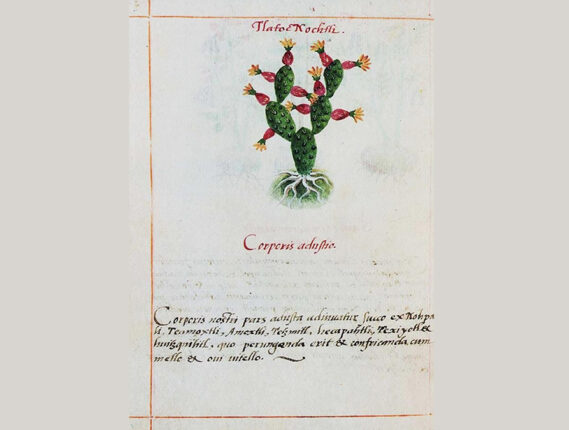 Tlatocnochtli.
Corporis adustio.
Corporis nostri pars adusta adiuvatur succo ex Nohpa
li, Teamoxtli, Amoxtli, Tetzmitl, hecapahtli, Texiyotl &
huitzquilitl, quo perungenda erit & confricanda cum
melle & ovi vitello.